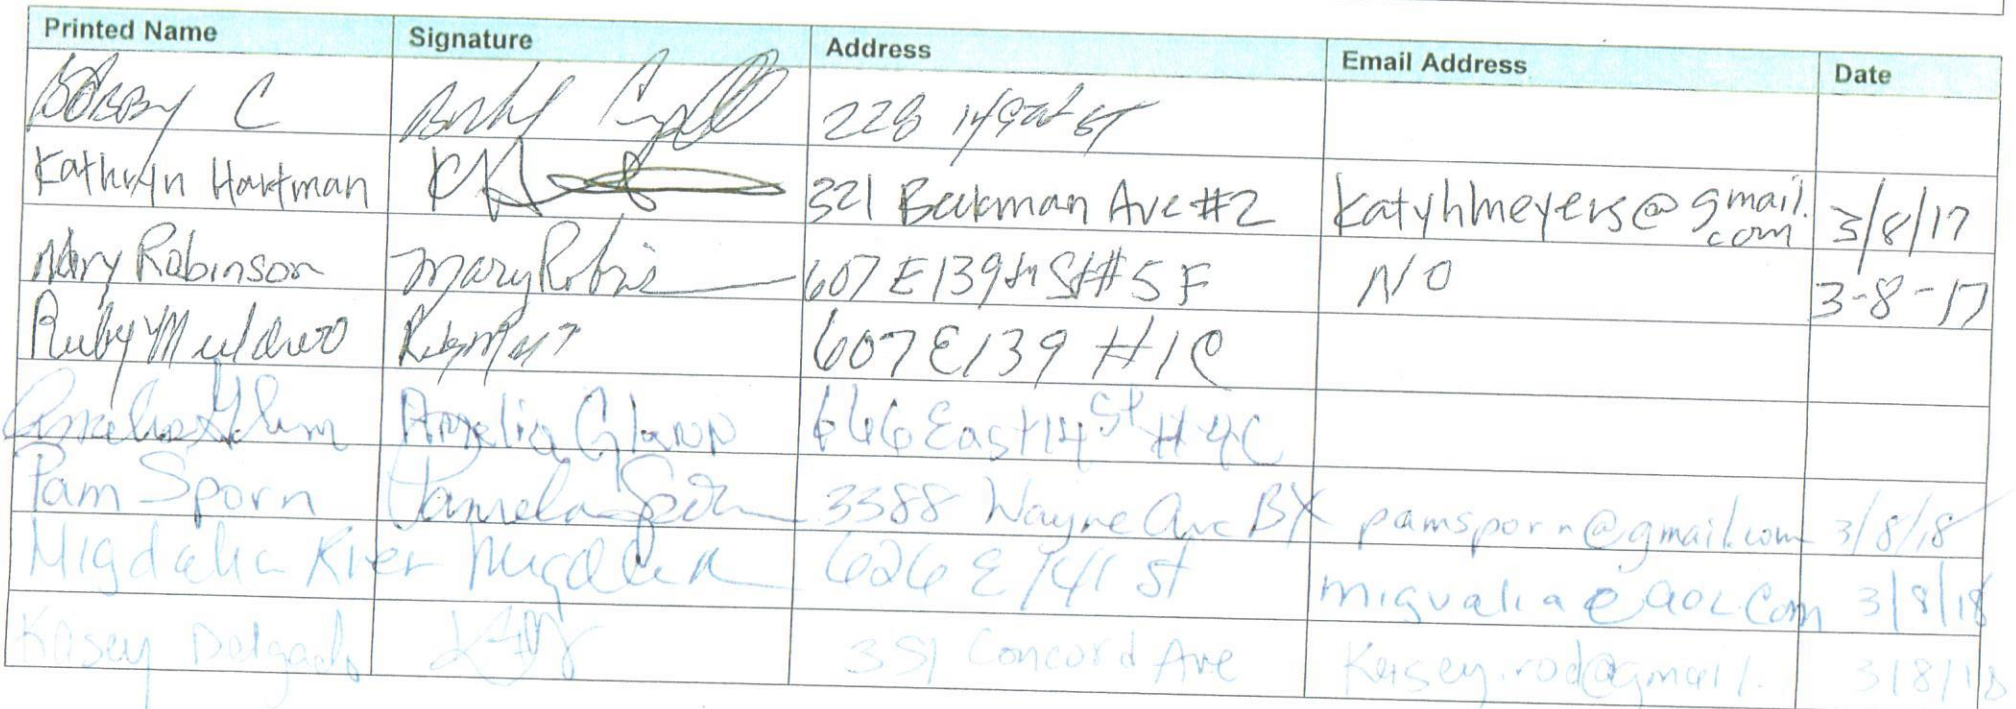 Printed Name Signature Address Email Address Date
Bobby C 228 149th St
Kathryn Hartman KH 321 Beekman Ave #2 katyhmeyers@gmail.com 3/8/17
Mary Robinson Mary Robins 607 E 139th St #5F NO 3-8-17
Ruby Muldrow Ruby 607 E 139 #1C
Amelia Glenn 646 East 14 St #4C
Pam Sporn Pamela Sporn 3388 Wayne Ave BX pamsporn@gmail.com 3/8/18
Migdalia River Migdalia 626 E 141 St migvalia@aol.com 3/8/18
Kasey Delgado 351 Concord Ave Kasey.rod@gmail. 3/8/18